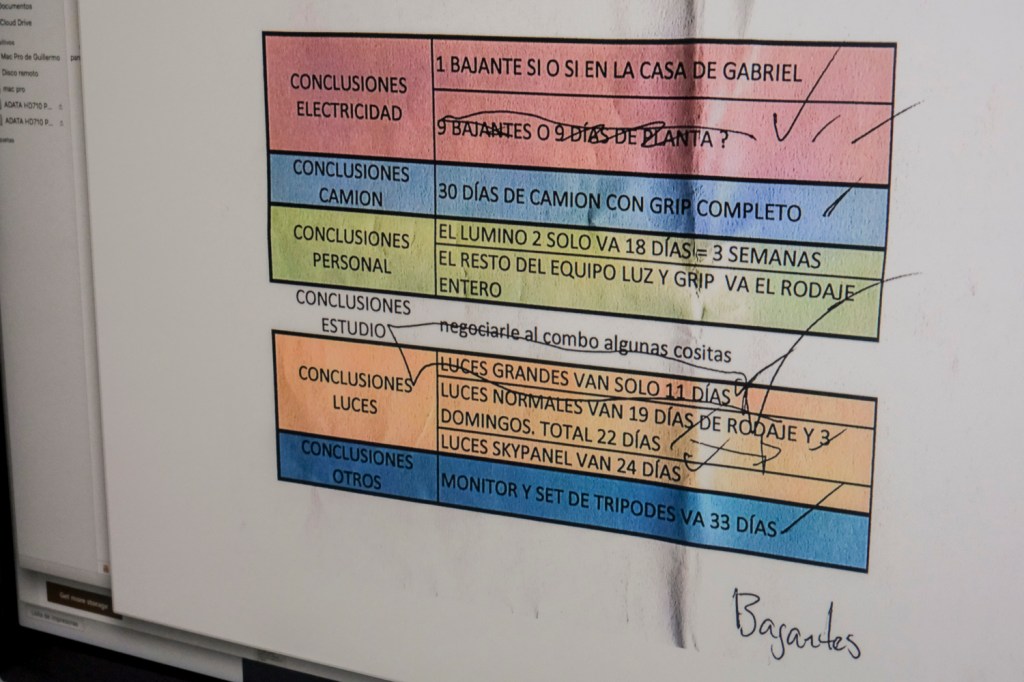 Cloud Drive
Mac Pro de Guillermo
Disco remoto
mac pro
ADATA HD710 P...
ADATA HD710 P...
Get more storage
CONCLUSIONES
ELECTRICIDAD
1 BAJANTE SI O SI EN LA CASA DE GABRIEL
9 BAJANTES O 9 DÍAS DE PLANTA ?
CONCLUSIONES
CAMION
30 DÍAS DE CAMION CON GRIP COMPLETO
CONCLUSIONES
PERSONAL
EL LUMINO 2 SOLO VA 18 DÍAS = 3 SEMANAS
EL RESTO DEL EQUIPO LUZ Y GRIP VA EL RODAJE
ENTERO
CONCLUSIONES
ESTUDIO
negociarle al combo algunas cositas
CONCLUSIONES
LUCES
LUCES GRANDES VAN SOLO 11 DÍAS
LUCES NORMALES VAN 19 DÍAS DE RODAJE Y 3
DOMINGOS. TOTAL 22 DÍAS
LUCES SKYPANEL VAN 24 DÍAS
CONCLUSIONES
OTROS
MONITOR Y SET DE TRIPODES VA 33 DÍAS
Bajantes